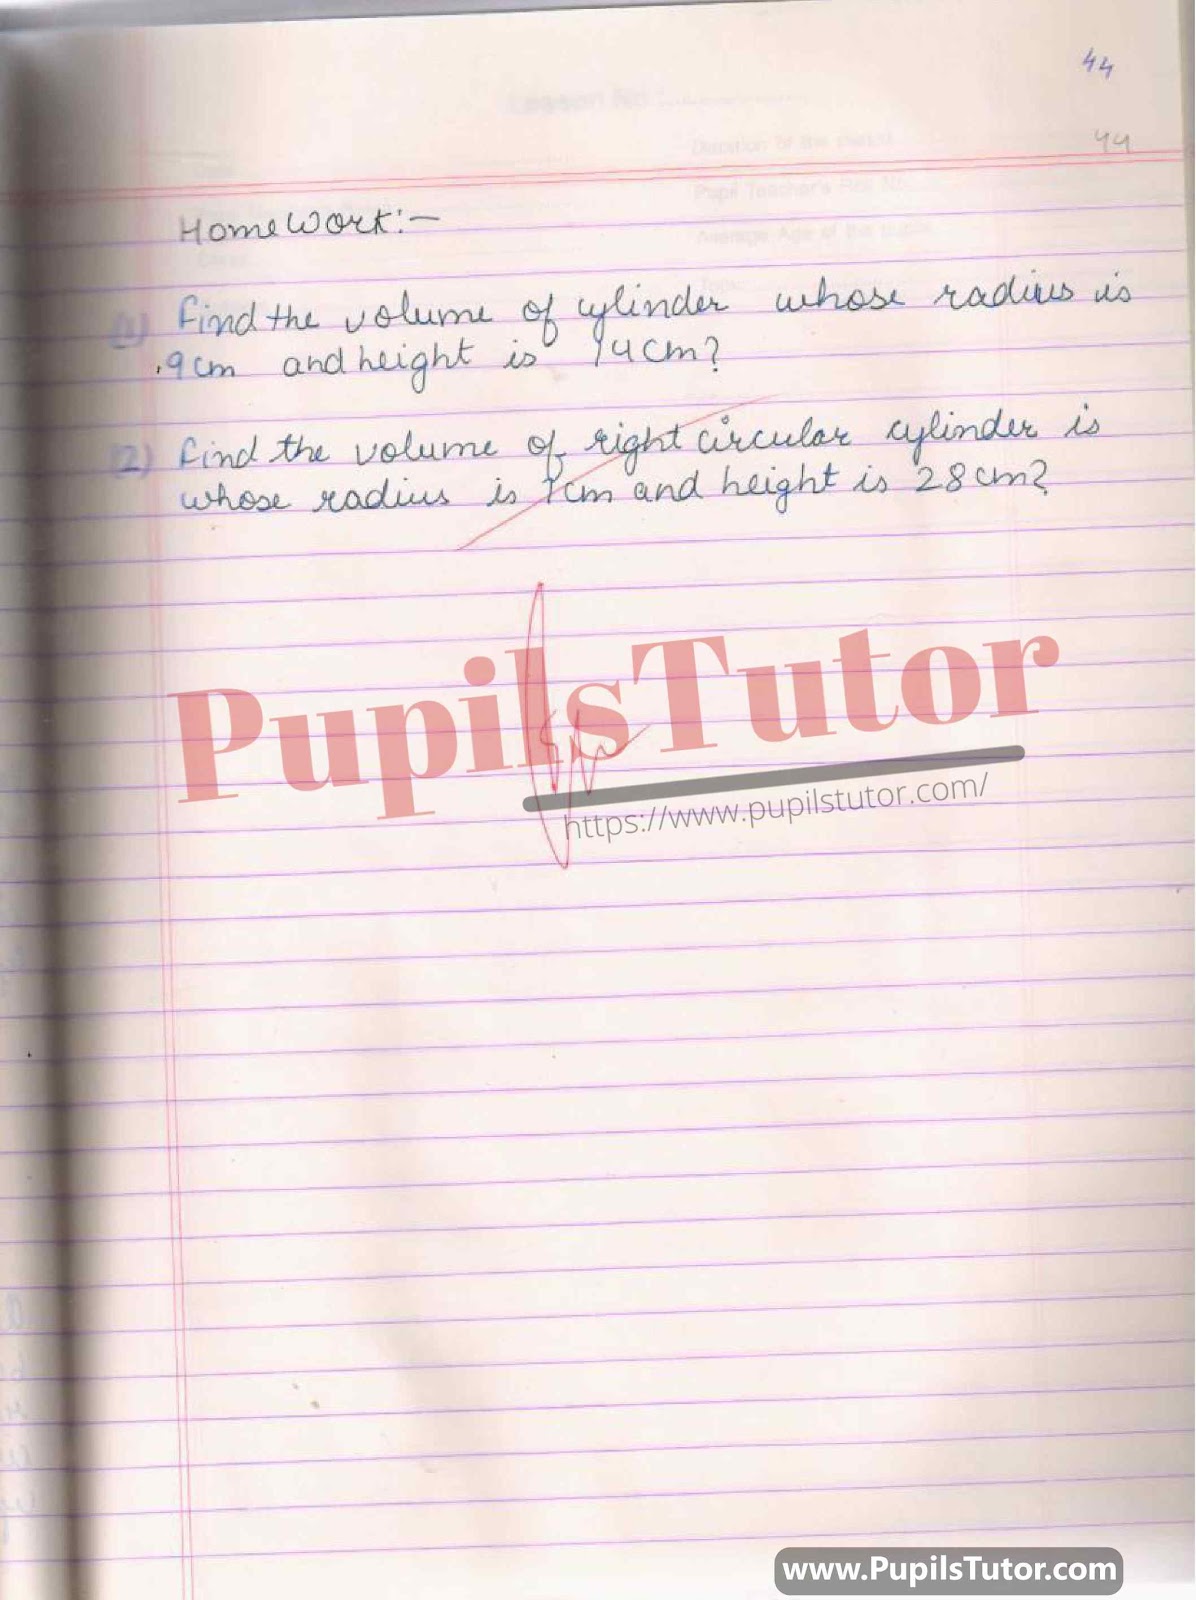 44
44
Home Work:-
(1) Find the volume of cylinder whose radius is
.9cm and height is 14cm?
(2) Find the volume of right circular cylinder is
whose radius is 7cm and height is 28cm?
PupilsTutor
https://www.pupilstutor.com/
www.PupilsTutor.com